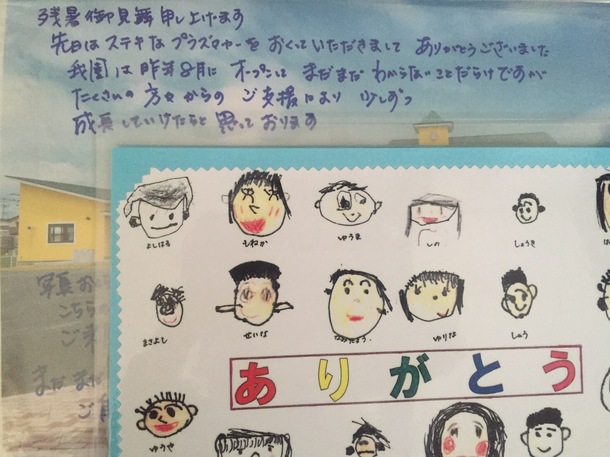 残暑御見舞申し上げます
先日はステキなプラズマカーをおくっていただきまして ありがとうございました
我園は昨年8月に オープンして まだまだ わからないことだらけですが
たくさんの方々からの ご支援により 少しずつ
成長していけたらと思っております
よしはる もねか ゆうま しの しょうき
写真お
こちらの
まさよし せいな ゆりな しゅう
ありがとう
ゆうや